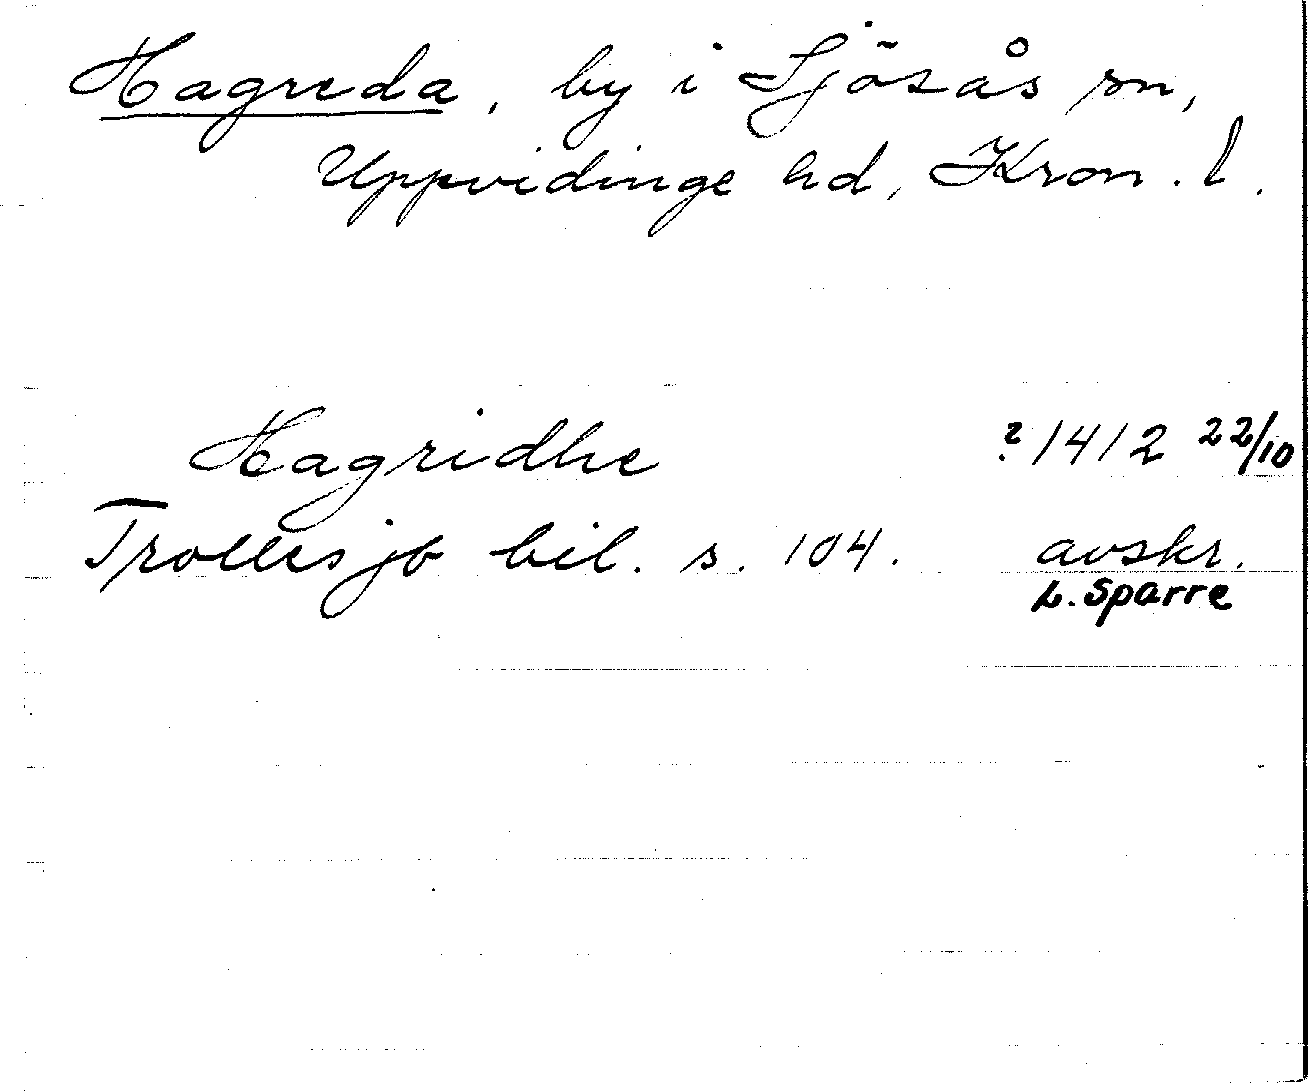 Hagreda, by i Sjösås sn,
Uppvidinge hd, Kron. l.
Hagridhe ? 1412 22/10
Trollesjö bil. s. 104. avskr.
L. Sparre